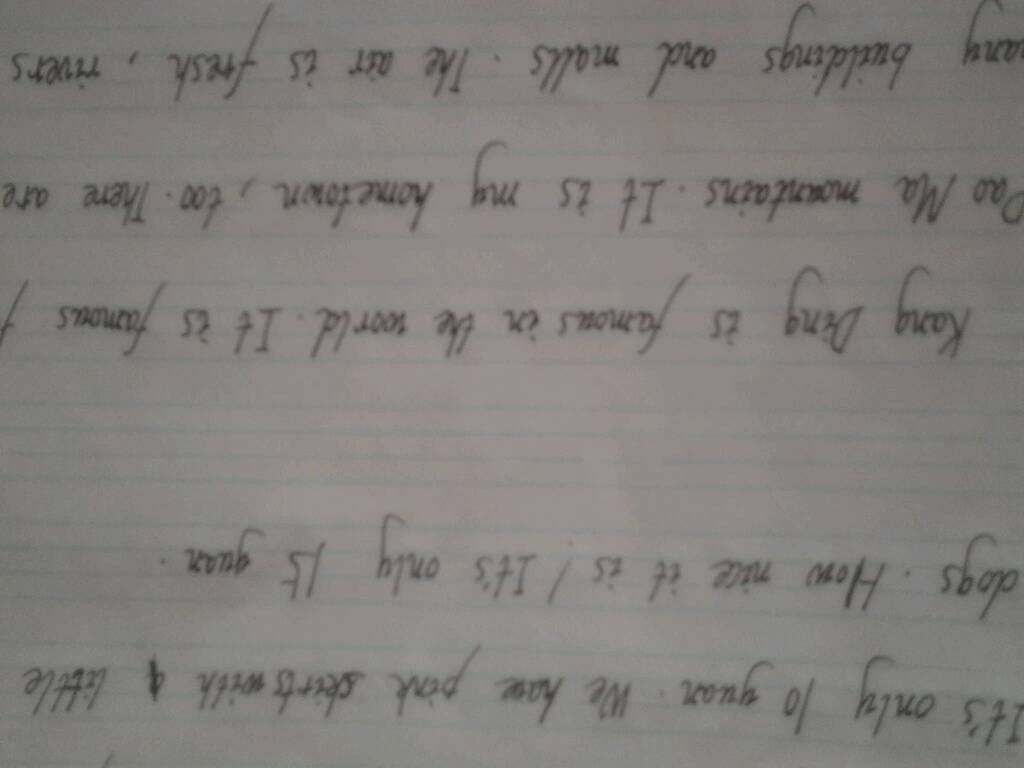 It's only 10 yuan. We have pink skirts with 4 little
dogs. How nice it is! It's only 15 yuan.
Kang Ding is famous in the world. It is famous
Pao Ma mountains. It is my hometown, too. There are
any buildings and malls. The air is fresh, rivers